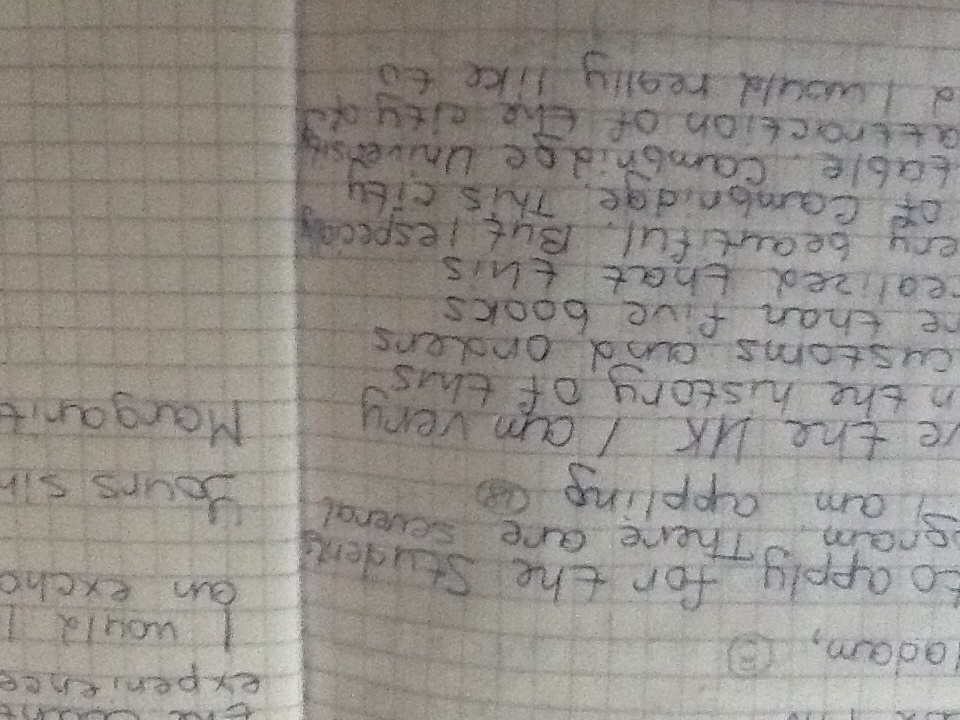 adam,
to apply for the student
gram. There are several
I am appling
ve the UK I am very
n the history of this
customs and orders
re than five books
realized that this
ery beautiful. But I especially
of Cambridge. This city
table. Cambridge University
attraction of the city of
d I would really like to
experience
I would l
an excha
Yours sin
Margarit